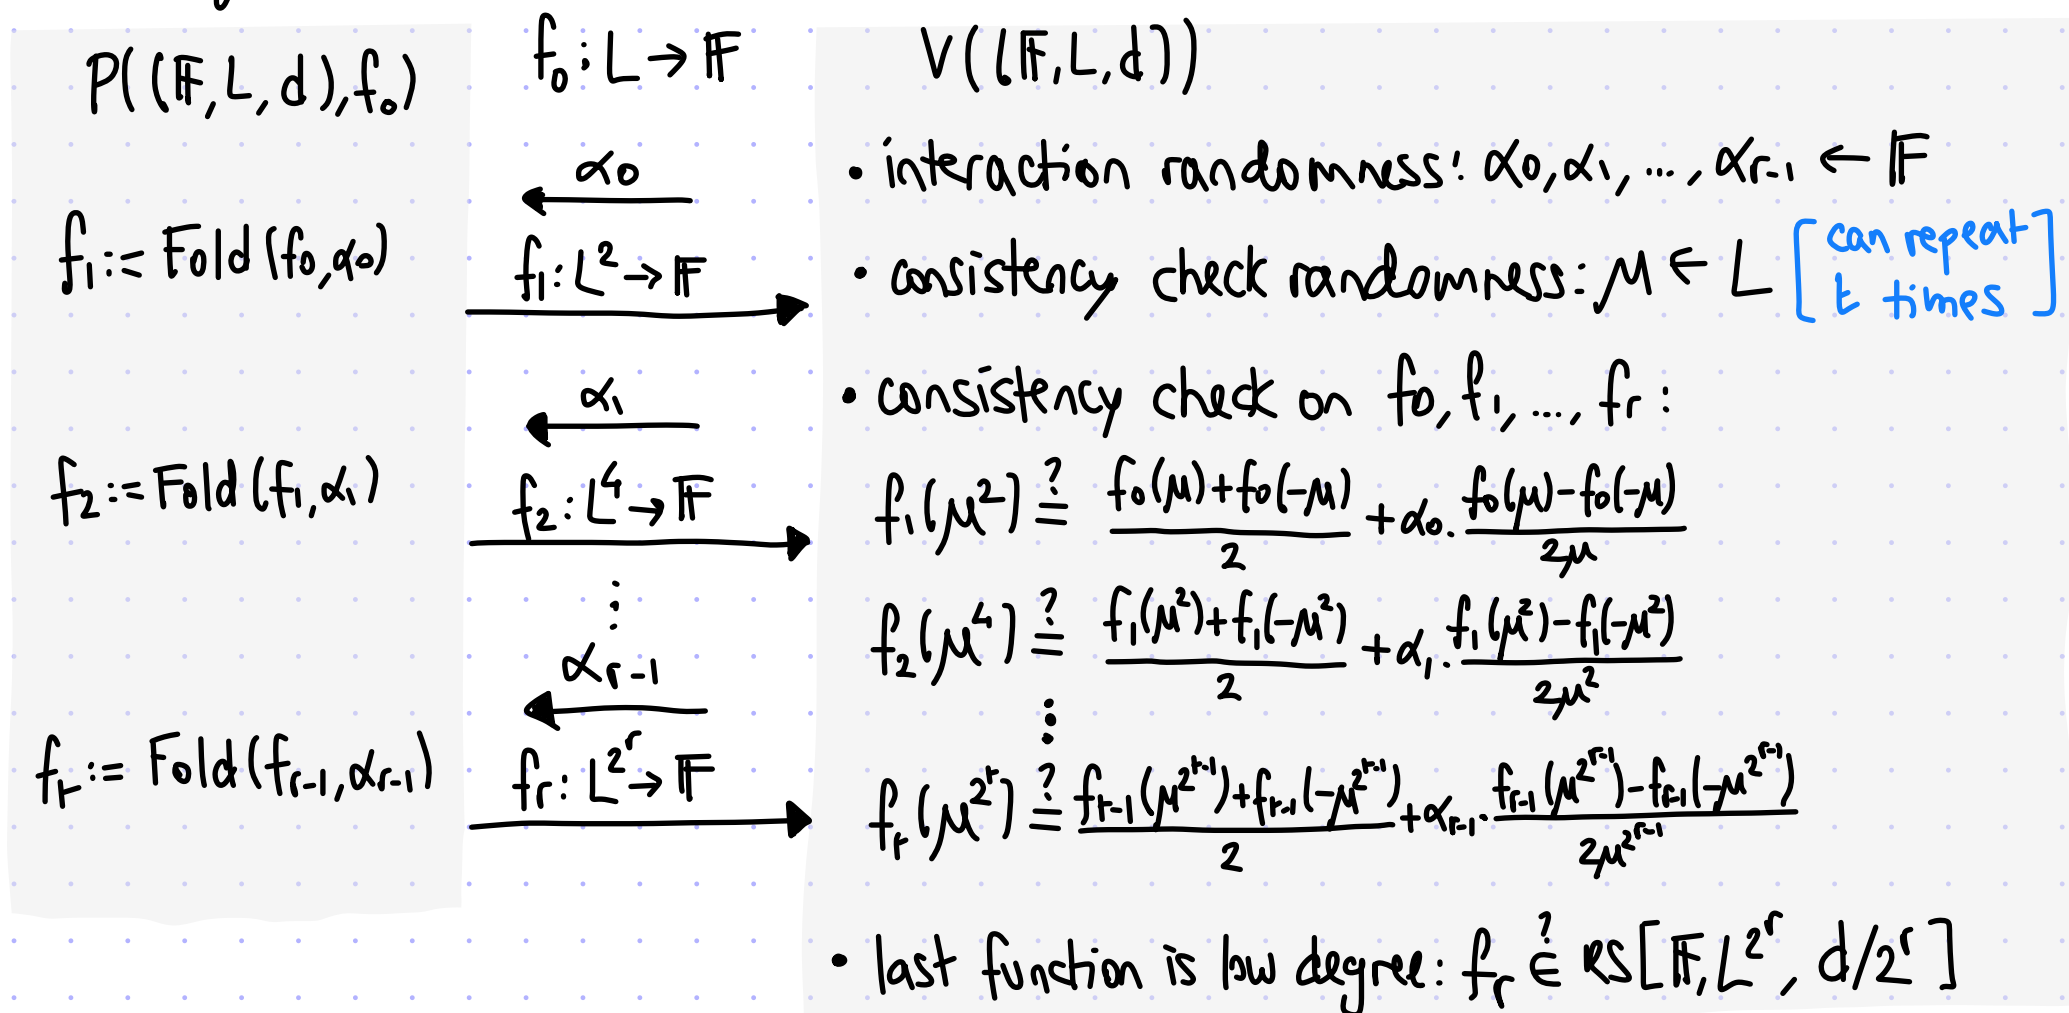 P((𝔽, L, d), f₀)
f₁ := Fold(f₀, α₀)
f₂ := Fold(f₁, α₁)
fᵣ := Fold(fᵣ₋₁, αᵣ₋₁)
f₀ : L → 𝔽
α₀
f₁ : L² → 𝔽
α₁
f₂ : L⁴ → 𝔽
⋮
αᵣ₋₁
fᵣ : L^{2^r} → 𝔽
V((𝔽, L, d))
• interaction randomness: α₀, α₁, ..., αᵣ₋₁ ← 𝔽
• consistency check randomness: μ ← L [can repeat
t times]
• consistency check on f₀, f₁, ..., fᵣ :
f₁(μ²) ≟ (f₀(μ)+f₀(-μ))/2 + α₀ · (f₀(μ)-f₀(-μ))/2μ
f₂(μ⁴) ≟ (f₁(μ²)+f₁(-μ²))/2 + α₁ · (f₁(μ²)-f₁(-μ²))/2μ²
⋮
fᵣ(μ^{2^r}) ≟ (fᵣ₋₁(μ^{2^{r-1}})+fᵣ₋₁(-μ^{2^{r-1}}))/2 + αᵣ₋₁ · (fᵣ₋₁(μ^{2^{r-1}})-fᵣ₋₁(-μ^{2^{r-1}}))/2μ^{2^{r-1}}
• last function is low degree: fᵣ ∈? RS[𝔽, L^{2^r}, d/2^r]